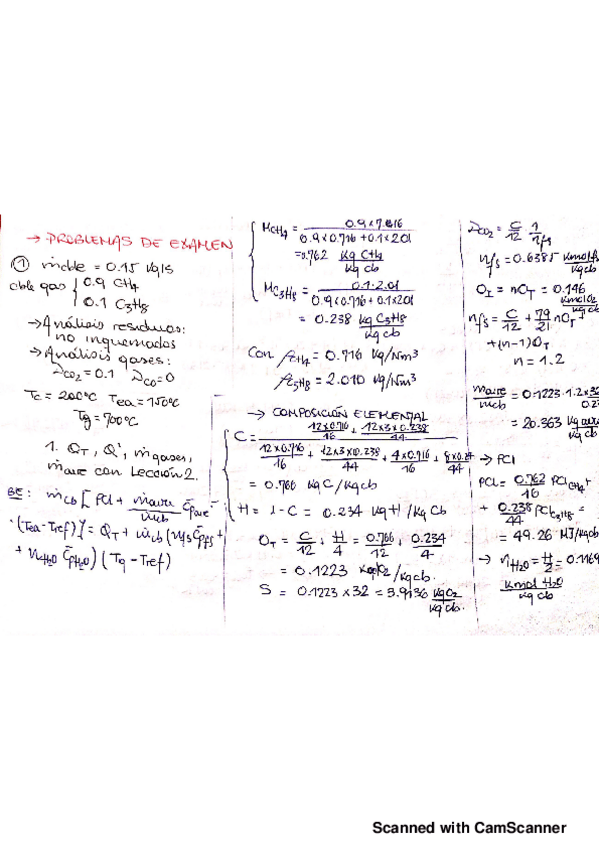 → PROBLEMAS DE EXAMEN
① ṁcble = 0.15 kg/s
cble gas { 0.9 CH4
0.1 C3H8
→ Análisis residuos:
no inquemados
→ Análisis gases:
λCO2 = 0.1 λCO = 0
Tc = 200°C Tea = 150°C
Tg = 700°C
1. QT, Q', ṁgases,
ṁaire con Lección 2.
BE: ṁcb [ PCI + ṁaire/ṁcb c̄paire ·
· (Tea - Tref) ] = QT + ṁcb (nfs c̄pfs +
+ nH2O c̄pH2O) (Tg - Tref)
MCH4 = 0.9 x 7.616 / 0.9 x 0.716 + 0.1 x 2.01
= 0.762 kg CH4 / kg cb
MC3H8 = 0.1 · 2.01 / 0.9 x 0.716 + 0.1 x 2.01
= 0.238 kg C3H8 / kg cb
Con ρCH4 = 0.716 kg/Nm³
ρC3H8 = 2.010 kg/Nm³
→ COMPOSICIÓN ELEMENTAL
C = 12 x 0.716 / 16 + 12 x 3 x 0.238 / 44
12 x 0.716 / 16 + 12 x 3 x 0.238 / 44 + 4 x 0.716 / 16 + 8 x 0.2 / 44
= 0.766 kg C / kg cb
H = 1 - C = 0.234 kg H / kg cb
OT = C/12 + H/4 = 0.766/12 + 0.234/4
= 0.1223 kmol O2 / kg cb.
S = 0.1223 x 32 = 3.9136 kg O2 / kg cb
λCO2 = C/12 · 1/nfs
nfs = 0.6385 kmol fs / kg cb
OI = nOT = 0.146 kmol O2 / kg cb
nfs = C/12 + 79/21 nOT
+ (n-1)OT
n = 1.2
ṁaire / ṁcb = 0.1223 · 1.2 x 32
= 20.363 kg aire / kg cb
→ PCI
PCI = 0.762/16 PCICH4 +
+ 0.238/44 PCIC3H8 =
= 49.26 MJ/kg cb
→ nH2O = H/2 = 0.1169
kmol H2O / kg cb
Scanned with CamScanner